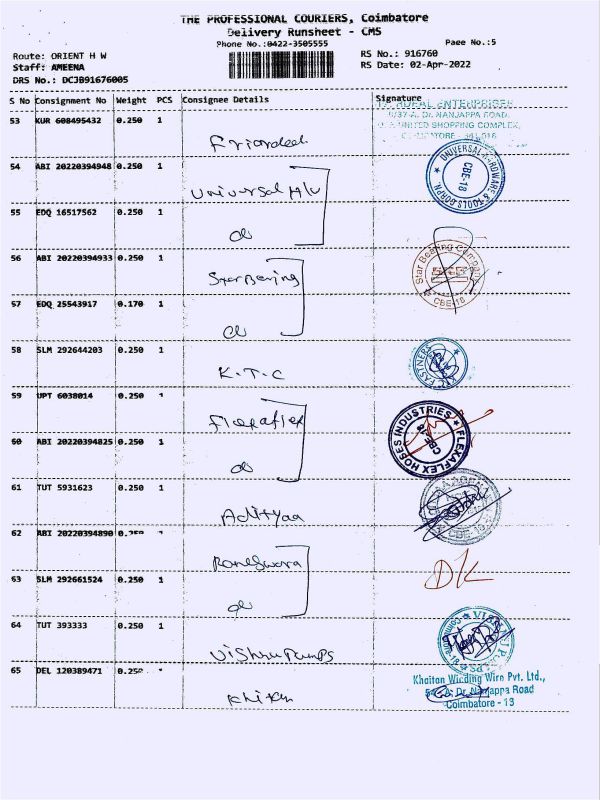 THE PROFESSIONAL COURIERS, Coimbatore
Delivery Runsheet - CMS
Phone No.:0422-3505555
Page No.:5
Route: ORIENT H W
RS No.: 916760
Staff: AMEENA
RS Date: 02-Apr-2022
DRS No.: DCJB91676005
S No Consignment No Weight PCS Consignee Details Signature
53 KUR 608495432 0.250 1
9/37-A, Dr. NANJAPPA ROAD,
UNITED SHOPPING COMPLEX,
54 ABI 20220394948 0.250 1
Universal H/W
UNIVERSAL HARDWARE & TOOLS CORPN
CBE-18
55 EDQ 16517562 0.250 1
do
56 ABI 20220394933 0.250 1
Star Bearing
Star Bearing Company
CBE-18
57 EDQ 25543917 0.170 1
do
58 SLM 292644203 0.250 1
K.T.C
FASTNERS
59 UPT 6038014 0.250 1
Flexaflex
FLEXAFLEX HOSES INDUSTRIES
CBE-18
60 ABI 20220394825 0.250 1
do
61 TUT 5931623 0.250 1
Adityaa
CBE-18
62 ABI 20220394890 0.250 1
63 SLM 292661524 0.250 1
do
DK
64 TUT 393333 0.250 1
Vishnu Pumps
65 DEL 120389471 0.250 1
Khaitan Winding Wire Pvt. Ltd.,
Dr. Nanjappa Road
Coimbatore - 13